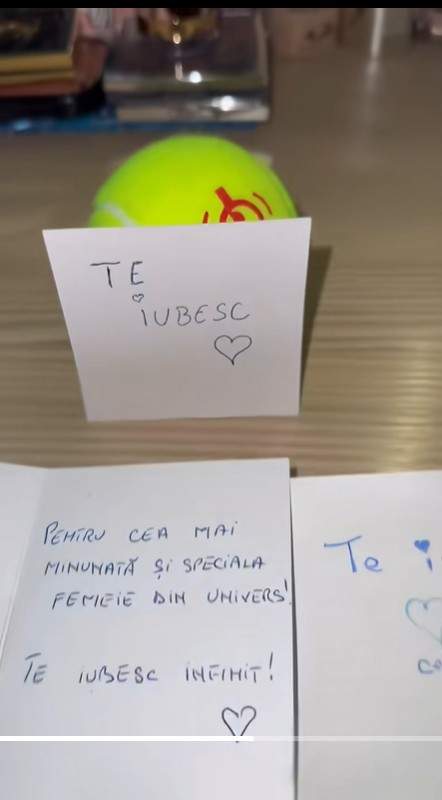 TE
IUBESC
PENTRU CEA MAI
MINUNATĂ ȘI SPECIALA
FEMEIE DIN UNIVERS!
TE IUBESC INFINIT!
Te i
co